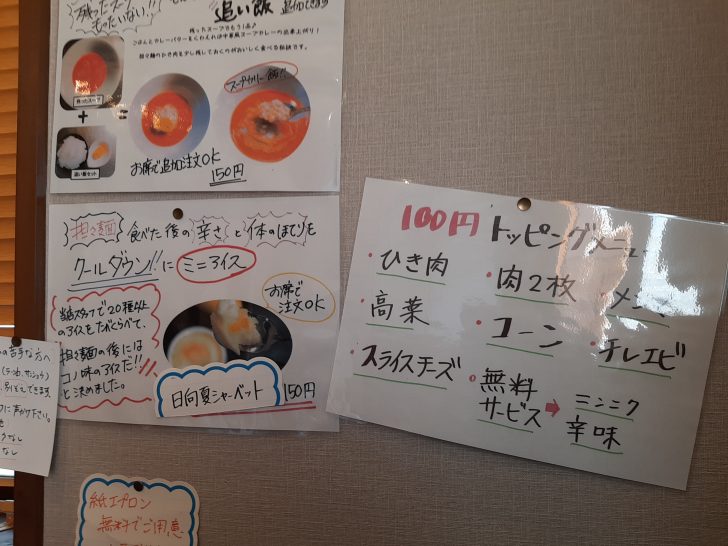 残ったスープ
もったいない!!
追い飯
残ったスープでもう1品♪
担々麺のひき肉を少し残しておくのがおいしく食べる秘訣です。
残ったスープ
+
=
追い飯セット
スープカリー飯!!
お席で追加注文OK
150円
担々麺 食べた後の辛さと体のほてりを
クールダウン!!に ミニアイス
お席で
注文OK
総スタッフで20種以上
のアイスをたべくらべて、
担々麺の後には
コノ味のアイスだ!!
と決めました。
日向夏シャーベット
150円
100円 トッピングメニュー
・ひき肉
・肉2枚
・メンマ
・高菜
・コーン
・チレエビ
・スライスチーズ
・無料
サービス
➡
ニンニク
辛味
の苦手な方へ
(ラー油、サンショウ)
別ぞえできます
に声かけ下さい。
なし
紙エプロン
無料でご用意